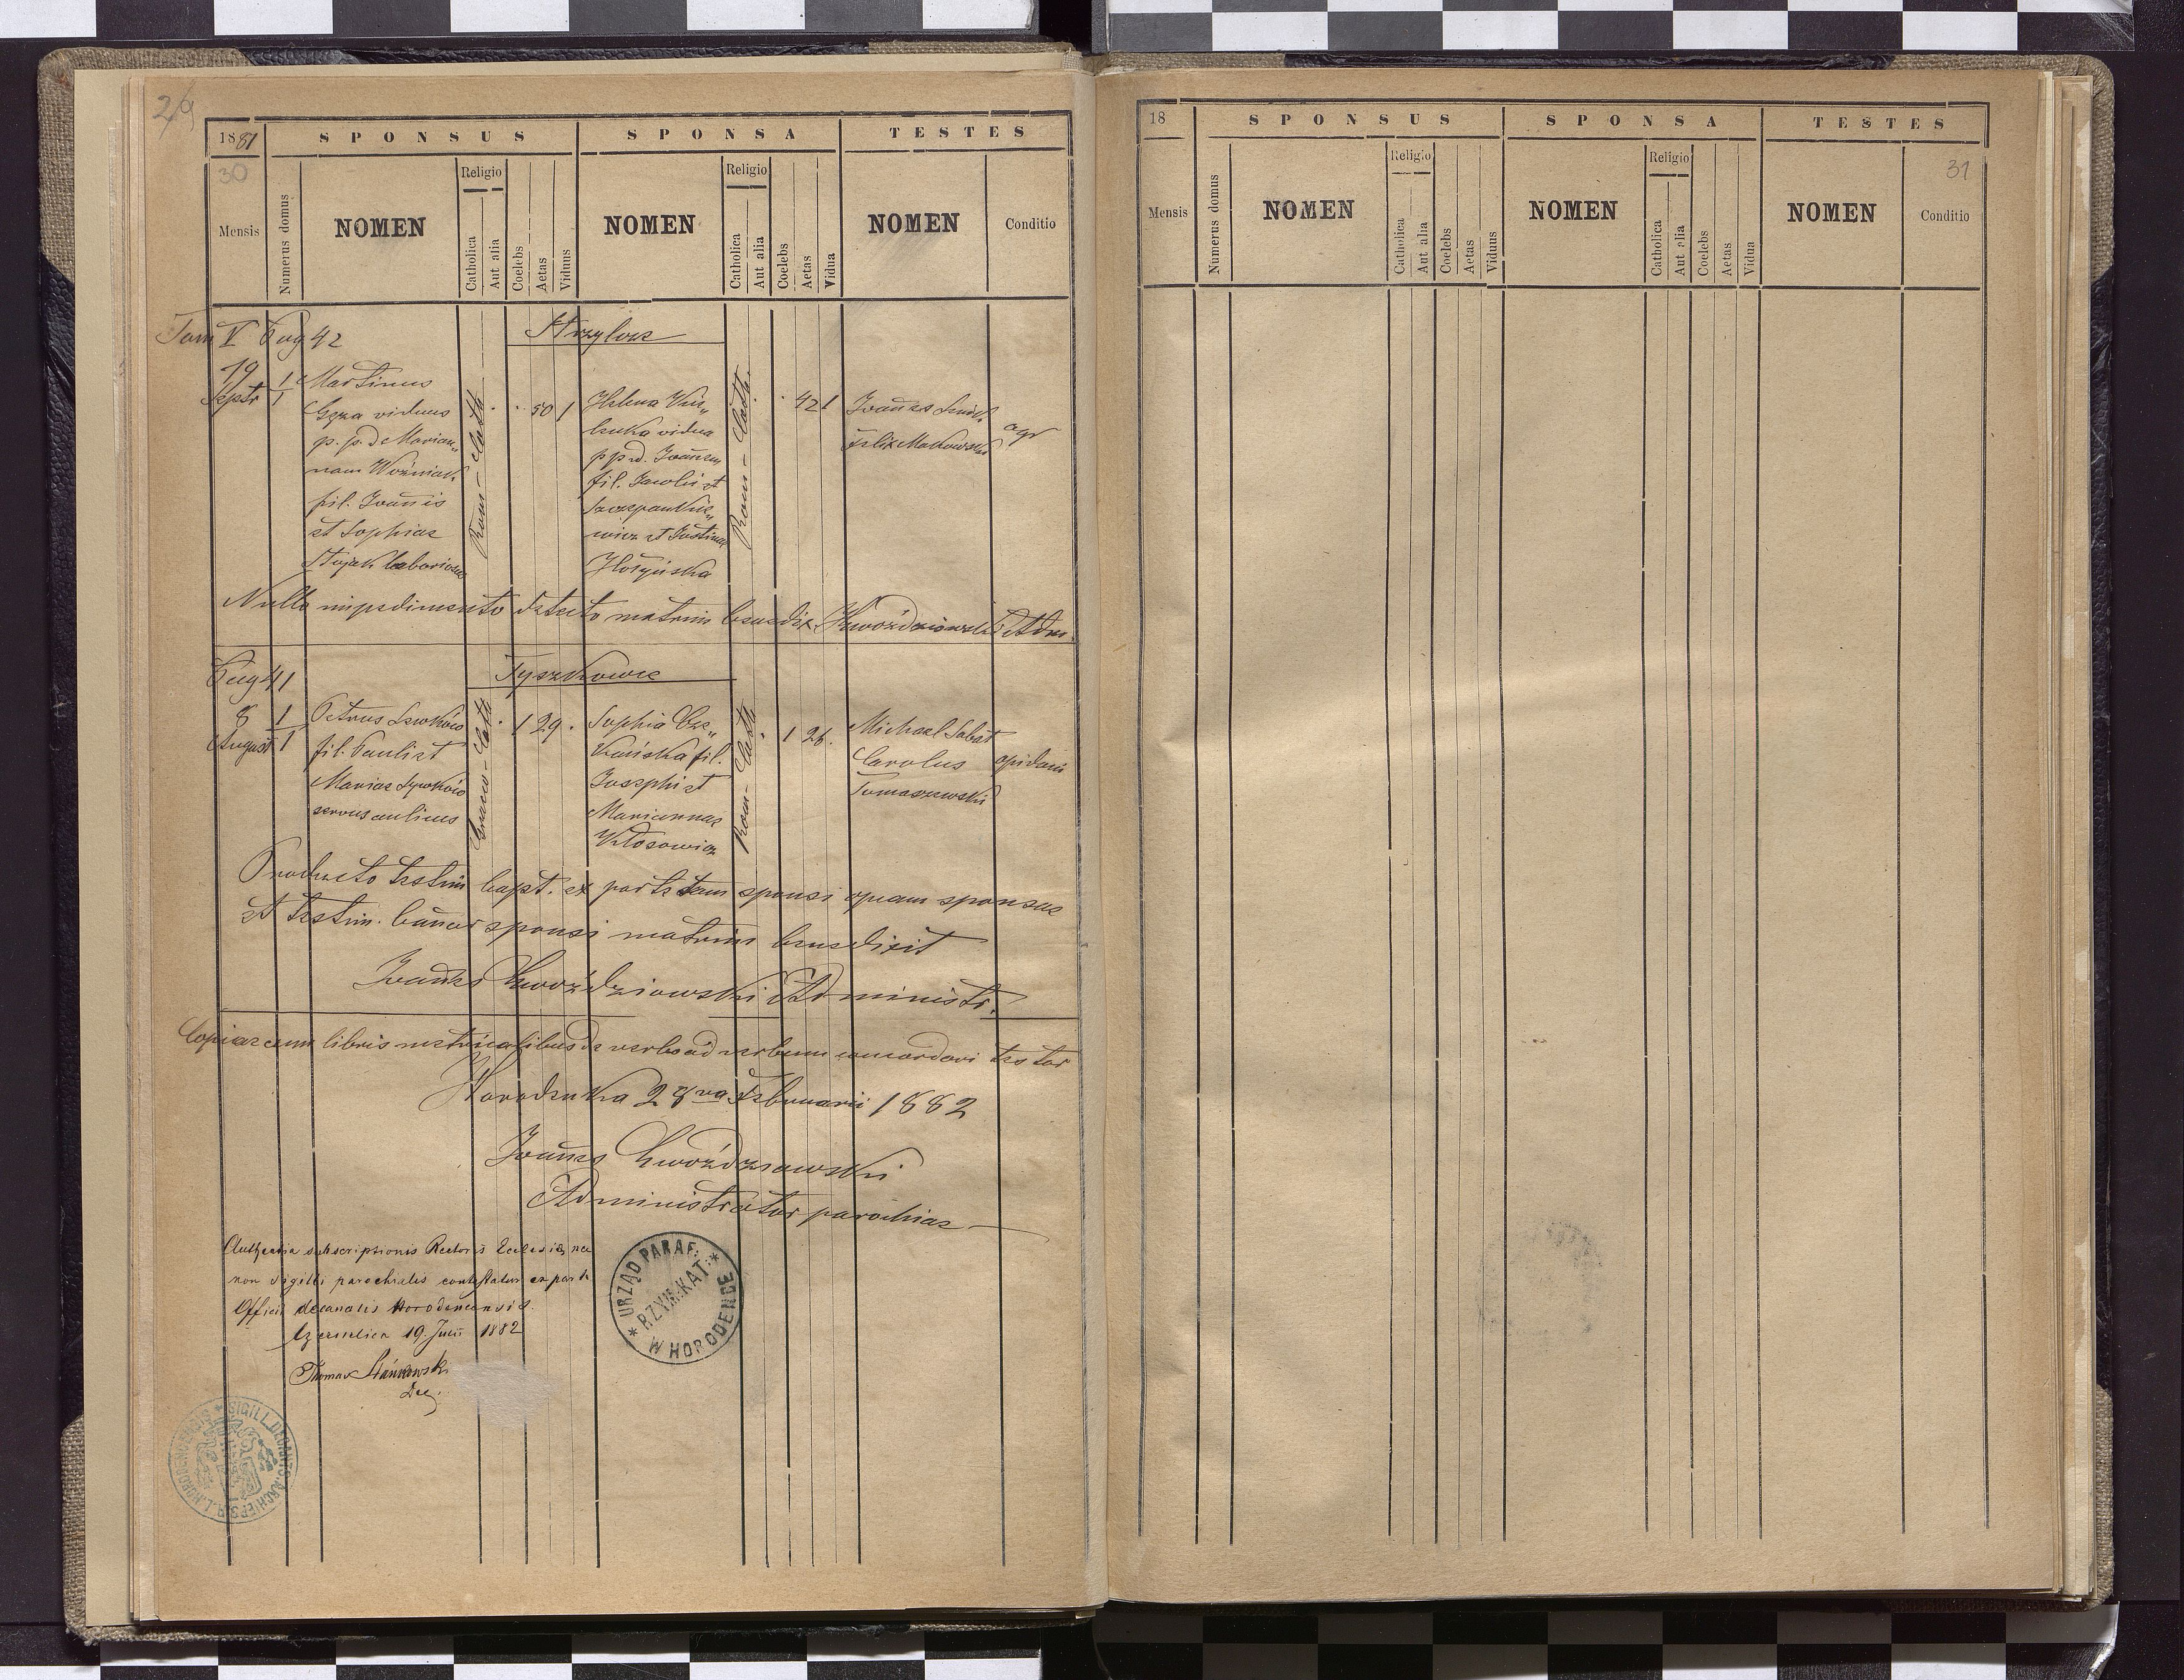 29
1881 SPONSUS SPONSA TESTES
30
Mensis Numerus domus NOMEN Religio Catholica Aut alia Coelebs Aetas Viduus NOMEN Religio Catholica Aut alia Coelebs Aetas Vidua NOMEN Conditio
Tom V Pag 42 Strzylcze
19 Septr
1 1
Martinus
Gęza viduus
p. p. d Marian„
nam Woźniak
fil. Joañis
et Sophiae
Stojak laboriosus
Rom - Cath.
50 1
Helena Kus„
vidua
p p d. Joañem
fil. Jacobi et
Szczepankie„
wicz et Justinae
Hołyńska
Rom - Cath.
42 1
Joañes
Felix Makowski
agr
Nullo impedimento detecto matrim bened. Gwoździowski Adm.
Pag 41 Tyszkowce
8 August
1 1
Petrus Lewków
fil. Pauli et
Mariae
servus aulicus
Graeco - Cath
1 29.
Sophia Cze„
kańska fil.
Josephi et
Mariannae
Kłosowicz
Rom - Cath
1 26.
Michael Sabat
Carolus
Tomaszewski
opidani
Producto testim bapt. ex parte tam sponsi quam sponsae
et testim. bañor sponsi matrim benedixit
Joañes Gwoździowski Administr.
Copiae cum libris metricalibus de verbo ad verbum concordari testor
Horodenka 28va Februarii 1882
Joañes Gwoździowski
Administrator parochiae
subscriptionis Rectoris Ecclesiae, nec
non sigilli parochialis contestatur ex parte
Officii decanalis Horodencensis.
Czernelica 19. Junii 1882
Thomas
Dec.
* URZĄD PARAF: * RZYM.KAT: W HORODENCE
SIGILL. DECANTUS. ARCHIEP. R. L. HORODENCENSIS
18 SPONSUS SPONSA TESTES
31
Mensis Numerus domus NOMEN Religio Catholica Aut alia Coelebs Aetas Viduus NOMEN Religio Catholica Aut alia Coelebs Aetas Vidua NOMEN Conditio